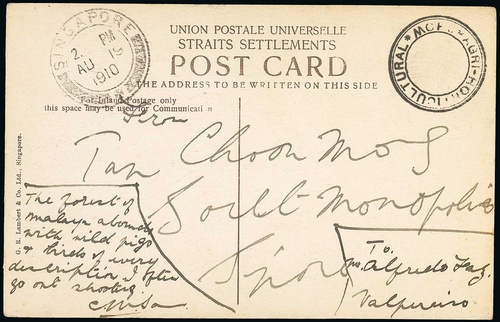 SINGAPORE
2 PM
AU 19
1910
UNION POSTALE UNIVERSELLE
STRAITS SETTLEMENTS
POST CARD
THE ADDRESS TO BE WRITTEN ON THIS SIDE
AGRI-HORTICULTURAL
For Inland Postage only
this space may be used for Communication
From
Tan Choon
The forest of
malaya abounds
with wild pigs
& birds of every
description I often
go out shooting
To.
Alfredo
Valpariso
G. R. Lambert & Co. Ltd., Singapore.